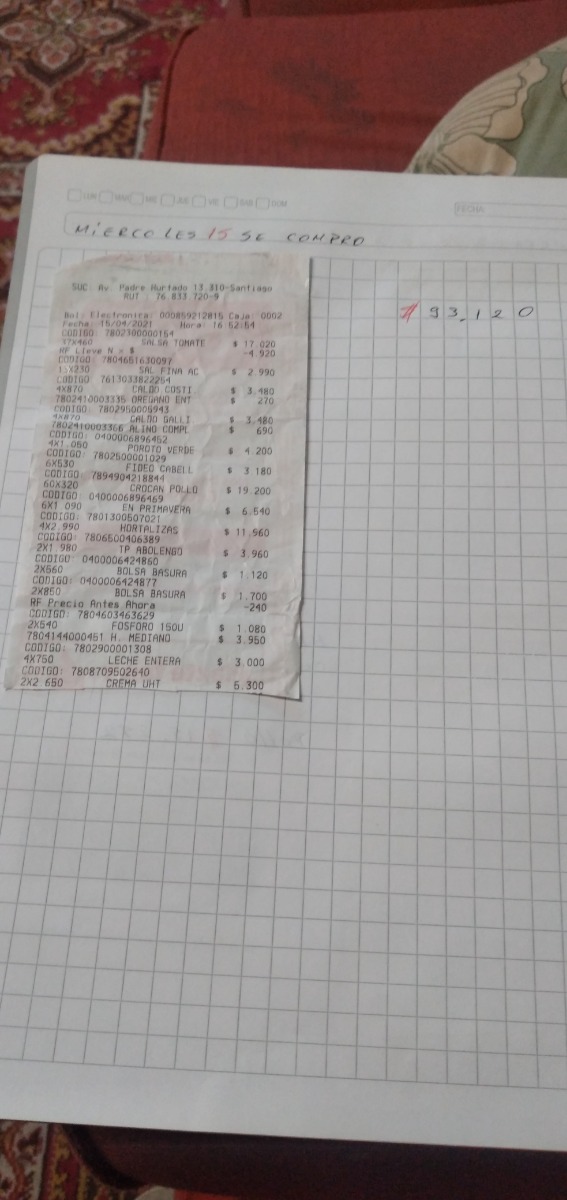 LUN MAR MIE JUE VIE SAB DOM
FECHA
MIERCOLES 15 SE COMPRO
# 93.120
SUC: Av. Padre Hurtado 13.310-Santiago
RUT : 76.833.720-9
Bol. Electronica: 000859212815 Caja: 0002
Fecha: 15/04/2021 Hora: 16:52:54
CODIGO: 7802300000154
37X460 SALSA TOMATE $ 17.020
RF Lleve N x $ -4.920
CODIGO: 7804651630097
13X230 SAL FINA AC $ 2.990
CODIGO: 7613033822254
4X870 CALDO COSTI $ 3.480
7802410003335 OREGANO ENT $ 270
CODIGO: 7802950005943
4X870 CALDO GALLI $ 3.480
7802410003366 ALINO COMPL $ 690
CODIGO: 0400006896452
4X1.050 POROTO VERDE $ 4.200
CODIGO: 7802500001029
6X530 FIDEO CABELL $ 3.180
CODIGO: 7894904218844
60X320 CROCAN POLLO $ 19.200
CODIGO: 0400006896469
6X1.090 EN PRIMAVERA $ 6.540
CODIGO: 7801300507021
4X2.990 HORTALIZAS $ 11.960
CODIGO: 7806500406389
2X1.980 TP ABOLENGO $ 3.960
CODIGO: 0400006424860
2X560 BOLSA BASURA $ 1.120
CODIGO: 0400006424877
2X850 BOLSA BASURA $ 1.700
RF Precio Antes Ahora -240
CODIGO: 7804603463629
2X540 FOSFORO 150U $ 1.080
7804144000451 H. MEDIANO $ 3.950
CODIGO: 7802900001308
4X750 LECHE ENTERA $ 3.000
CODIGO: 7808709502640
2X2.650 CREMA UHT $ 5.300